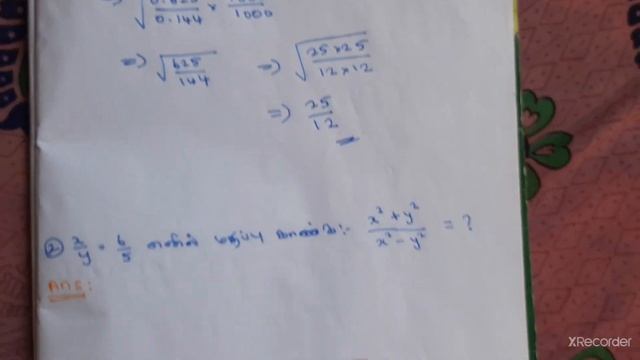 => √0.625/0.144 ×
1000
=> √625/144 => √25×25/12×12
=> 25/12
② x/y = 6/5 எனில் மதிப்பு காண்க:- x²+y²/x²-y² = ?
Ans:
XRecorder